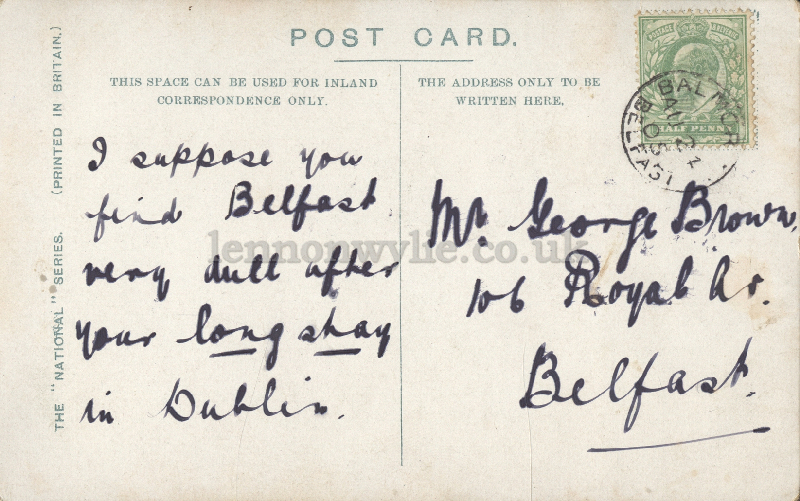 POST CARD.
THIS SPACE CAN BE USED FOR INLAND
CORRESPONDENCE ONLY.
THE ADDRESS ONLY TO BE
WRITTEN HERE,
THE "NATIONAL" SERIES. (PRINTED IN BRITAIN.)
I suppose you
find Belfast
very dull after
your long stay
in Dublin.
Mr. George Brown,
106 Royal Av.
Belfast.
HALF PENNY
BELFAST
lennonwylie.co.uk